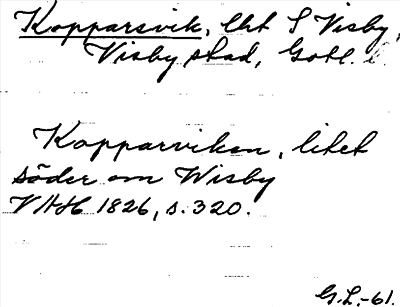 Kopparsvik, lht S Visby,
Visby stad, Gotl. l
Kopparviken, litet
söder om Wisby
VAH 1826, s. 320.
G.L.-61.